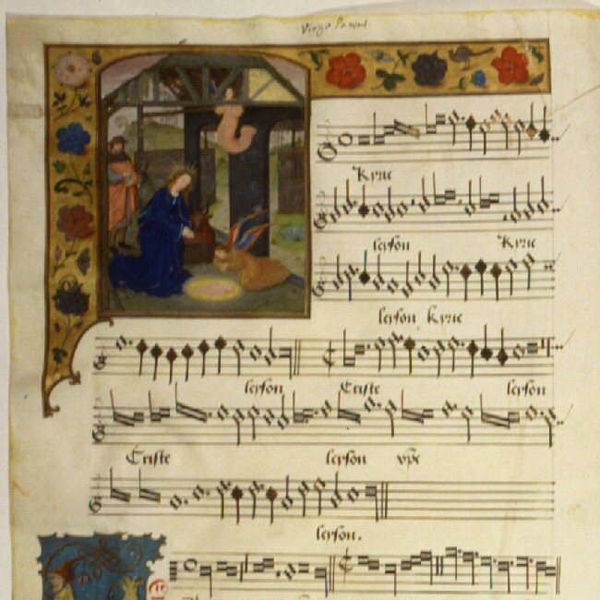 Kyrie
leyson Kyrie
leyson kyrie
leyson Criste leyson
Criste leyson xpe
leyson.